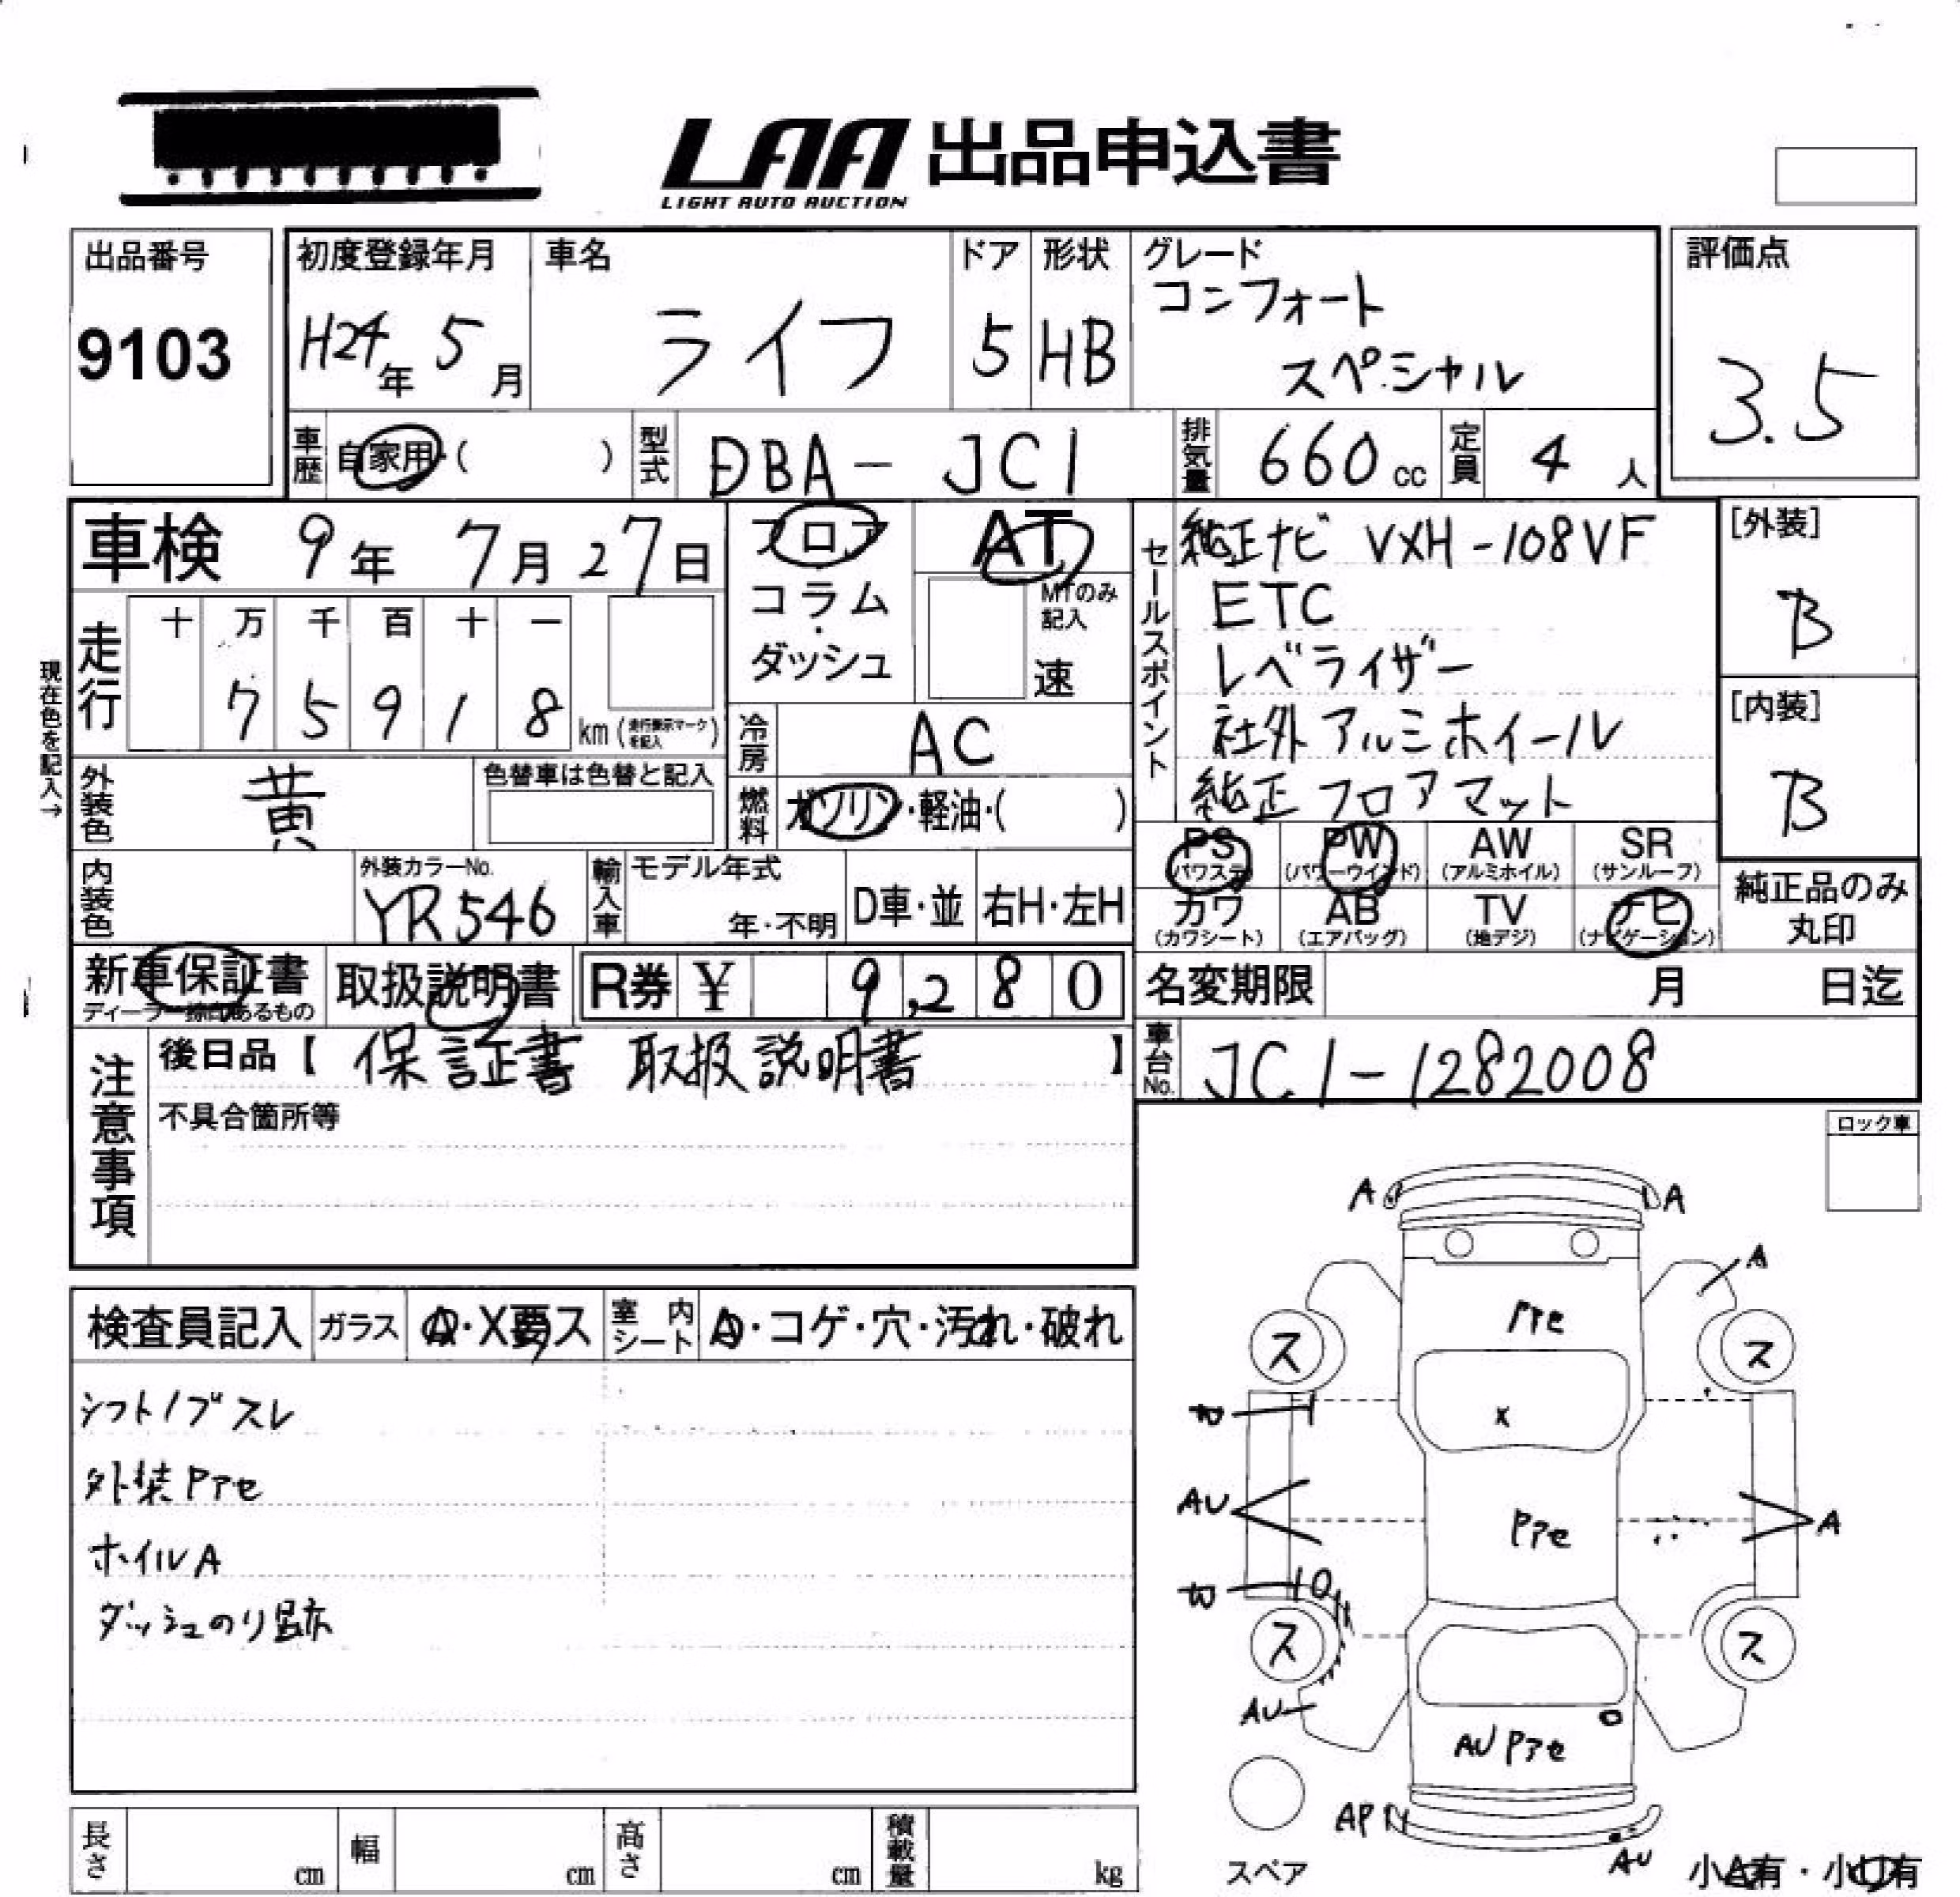 LAA 出品申込書
LIGHT AUTO AUCTION
出品番号
9103
初度登録年月
H24年 5月
車名
ライフ
ドア
5
形状
HB
グレード
コンフォート
スペシャル
評価点
3.5
車歴
自家用・( )
型式
DBA-JC1
排気量
660cc
定員
4人
車検 9年 7月 27日
フロア
コラム
・
ダッシュ
AT
MTのみ
記入
速
セールスポイント
純正ナビ VXH-108VF
ETC
レベライザー
社外アルミホイール
純正フロアマット
[外装]
B
[内装]
B
現在色を記入→
走行
十 万 千 百 十 一
7 5 9 1 8
km(走行表示マークを記入)
冷房
AC
外装色
黄
色替車は色替と記入
燃料
ガソリン・軽油・( )
PS (パワステ)
PW (パワーウインド)
AW (アルミホイル)
SR (サンルーフ)
カワ (カワシート)
AB (エアバッグ)
TV (地デジ)
ナビ (ナビゲーション)
純正品のみ
丸印
内装色
外装カラーNo.
YR546
輸入車
モデル年式
年・不明
D車・並
右H・左H
新車保証書
取扱説明書
R券 ¥ 9,280
名変期限 月 日迄
車台No.
JC1-1282008
注意事項
後日品【 保証書 取扱説明書 】
不具合箇所等
ロック車
検査員記入
ガラス
A・X要ス
室内シート
A・コゲ・穴・汚れ・破れ
シフトノブスレ
外装Pアセ
ホイルA
ダッシュのり跡
A
A
A
Pアセ
ス
ス
X
AU
Pアセ
A
10
ス
ス
AU
AU Pアセ
AP
AU
スペア
小A有・小U有
長さ cm
幅 cm
高さ cm
積載量 kg